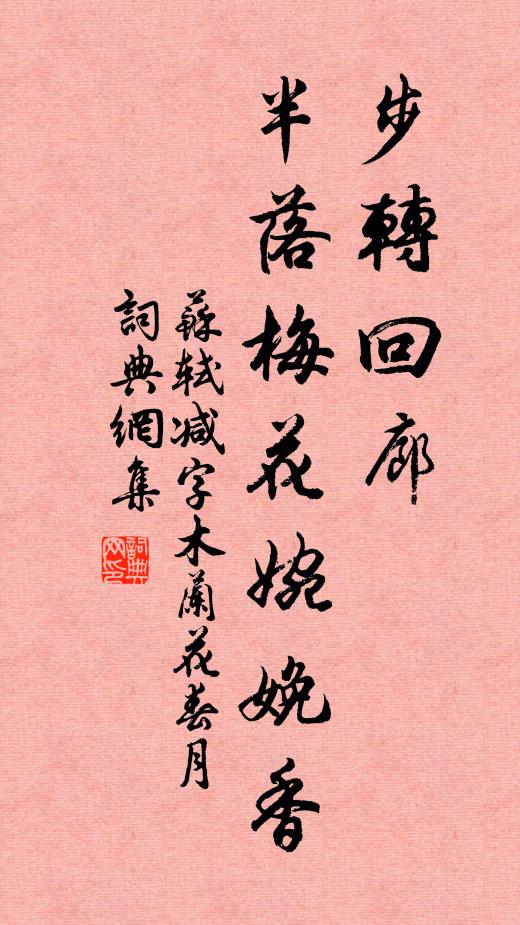 步轉回廊
半落梅花婉娩香
蘇軾减字木蘭花春月
詞典網集
詞典網印